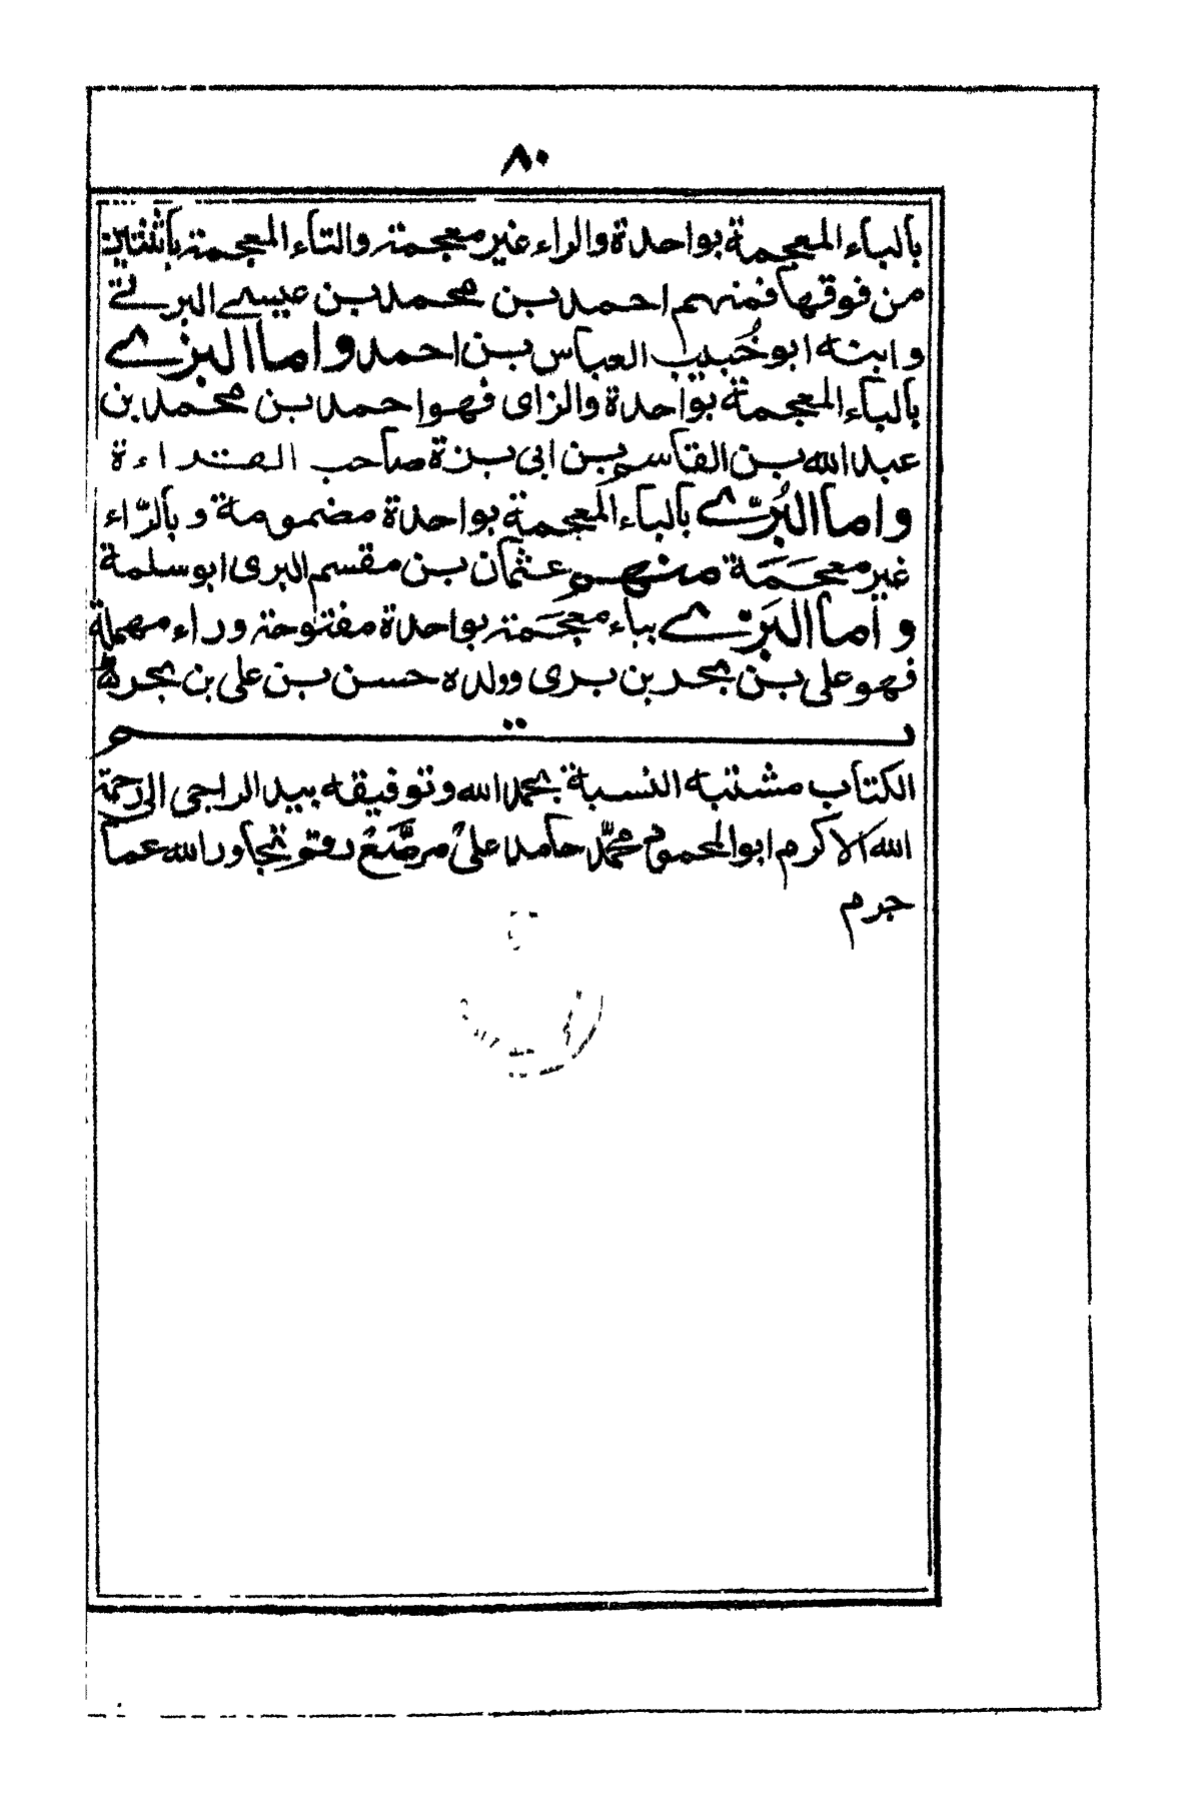 ٨٠
بالباء المعجمة بواحدة والراء غير معجمة والتاء المعجمة باثنتين
من فوقها فمنهم احمد بن محمد بن عيسى البرتے
وابنه ابو خُبيب العباس بن احمد واما البزے
بالباء المعجمة بواحدة والزاى فهو احمد بن محمد بن
عبد الله بن القاسم بن ابى بزة صاحب القراءة
واما البُرّے بالباء المعجمة بواحدة مضمومة وبالرّاء
غير معجَمَة منهم عثمان بن مقسم البرى ابو سلمة
واما البَرّے بباء معجَمة بواحدة مفتوحة وراء مهملة
فهو على بن بحر بن برى وولده حسن بن على بن بحرة
تم
الكتاب مشتبه النسبة بحمد الله وتوفيقه بيد الراجى الى رحمة
الله الاكرم ابو المحموم محمّد حامد على تجاور الله عما
جرم